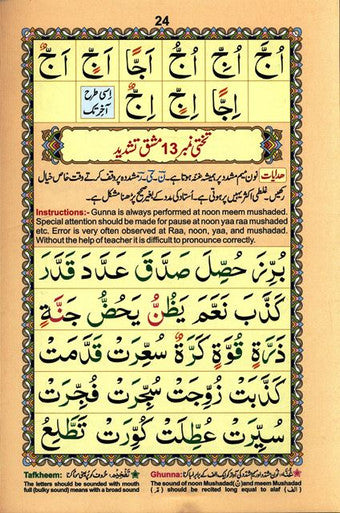 24
اُجَّ اُجِّ اُجُّ اَجًّا اَجٍّ اَجٌّ
اِجًّا اِجٍّ اِجٌّ اسی طرح آخر تک
تختی نمبر 13 مشق تشدید
ھدایات نون میم مشدد پر ہمیشہ غنہ ہوتا ہے۔ نّ۔ یّ۔ رّ مشدد پر وقف کرتے وقت خاص خیال
رکھیں۔ غلطی اکثر یہیں پر ہوتی ہے۔ اُستاد کی مدد کے بغیر صحیح پڑھنا مشکل ہے۔
Instructions:- Gunna is always performed at noon meem mushaded.
Special attention should be made for pause at noon yaa raa mushaded
etc. Error is very often observed at Raa, noon, yaa, and mushadad.
Without the help of teacher it is difficult to pronounce correctly.
بُرِّزَ حُصِّلَ صَدَّقَ عَدَّدَ قَدَّرَ
كَذَّبَ نَعَّمَ يَظُنُّ يَحُضُّ جَنَّةٍ
ذَرَّةٍ قُوَّةٍ كَرَّةٌ سُعِّرَتْ قَدَّمَتْ
كَذَّبَتْ زُوِّجَتْ سُجِّرَتْ فُجِّرَتْ
سُيِّرَتْ عُطِّلَتْ كُوِّرَتْ تَطَّلِعُ
Tafkheem:
The letters should be sounded with mouth
full (bulky sound) means with a broad sound
Ghunna:
The sound of noon Mushaded (نّ) and meem Mushaded
(مّ) should be recited long equal to alaf (الف)